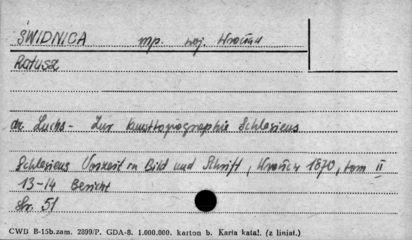 ŚWIDNICA mp. woj. Wrocław
Ratusz
dr. Luchs - Zur Kunsttopographie Schlesiens
Schlesiens Vorzeit in Bild und Schrift, Wrocław 1870, tom II
13-14 Bericht
Str. 51
CWD B-15b.zam. 2899/P. GDA-8. 1.000.000. karton b. Karta katal. (z liniat.)